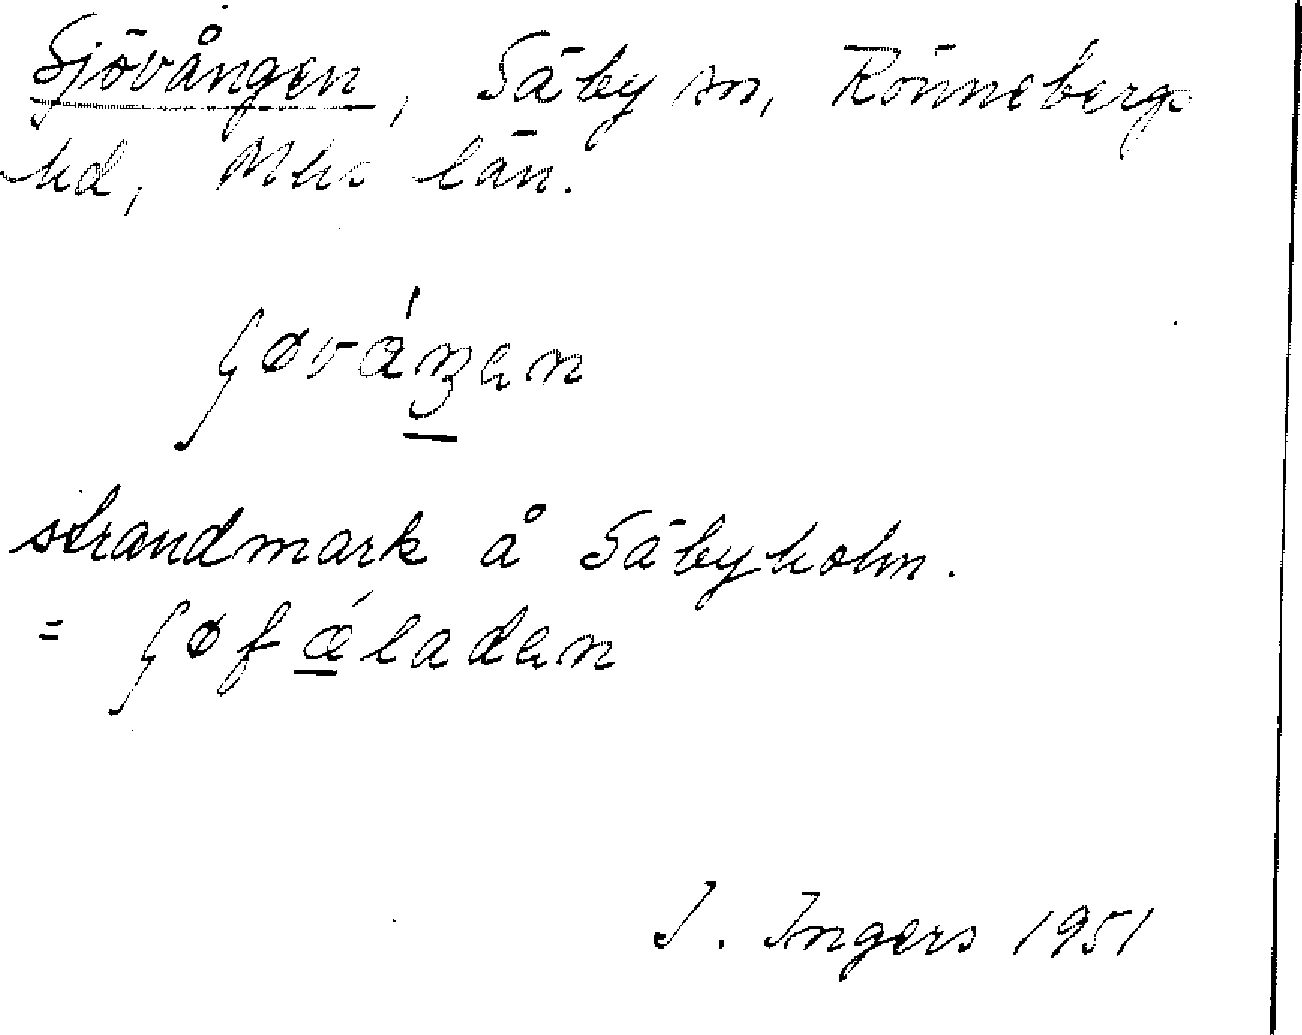 Sjövången, Säby sn, Rönnebergs
hd, Mhs län.
ʃøváŋen
strandmark å Säbyholm.
= ʃøfǽladen
I. Ingers 1951